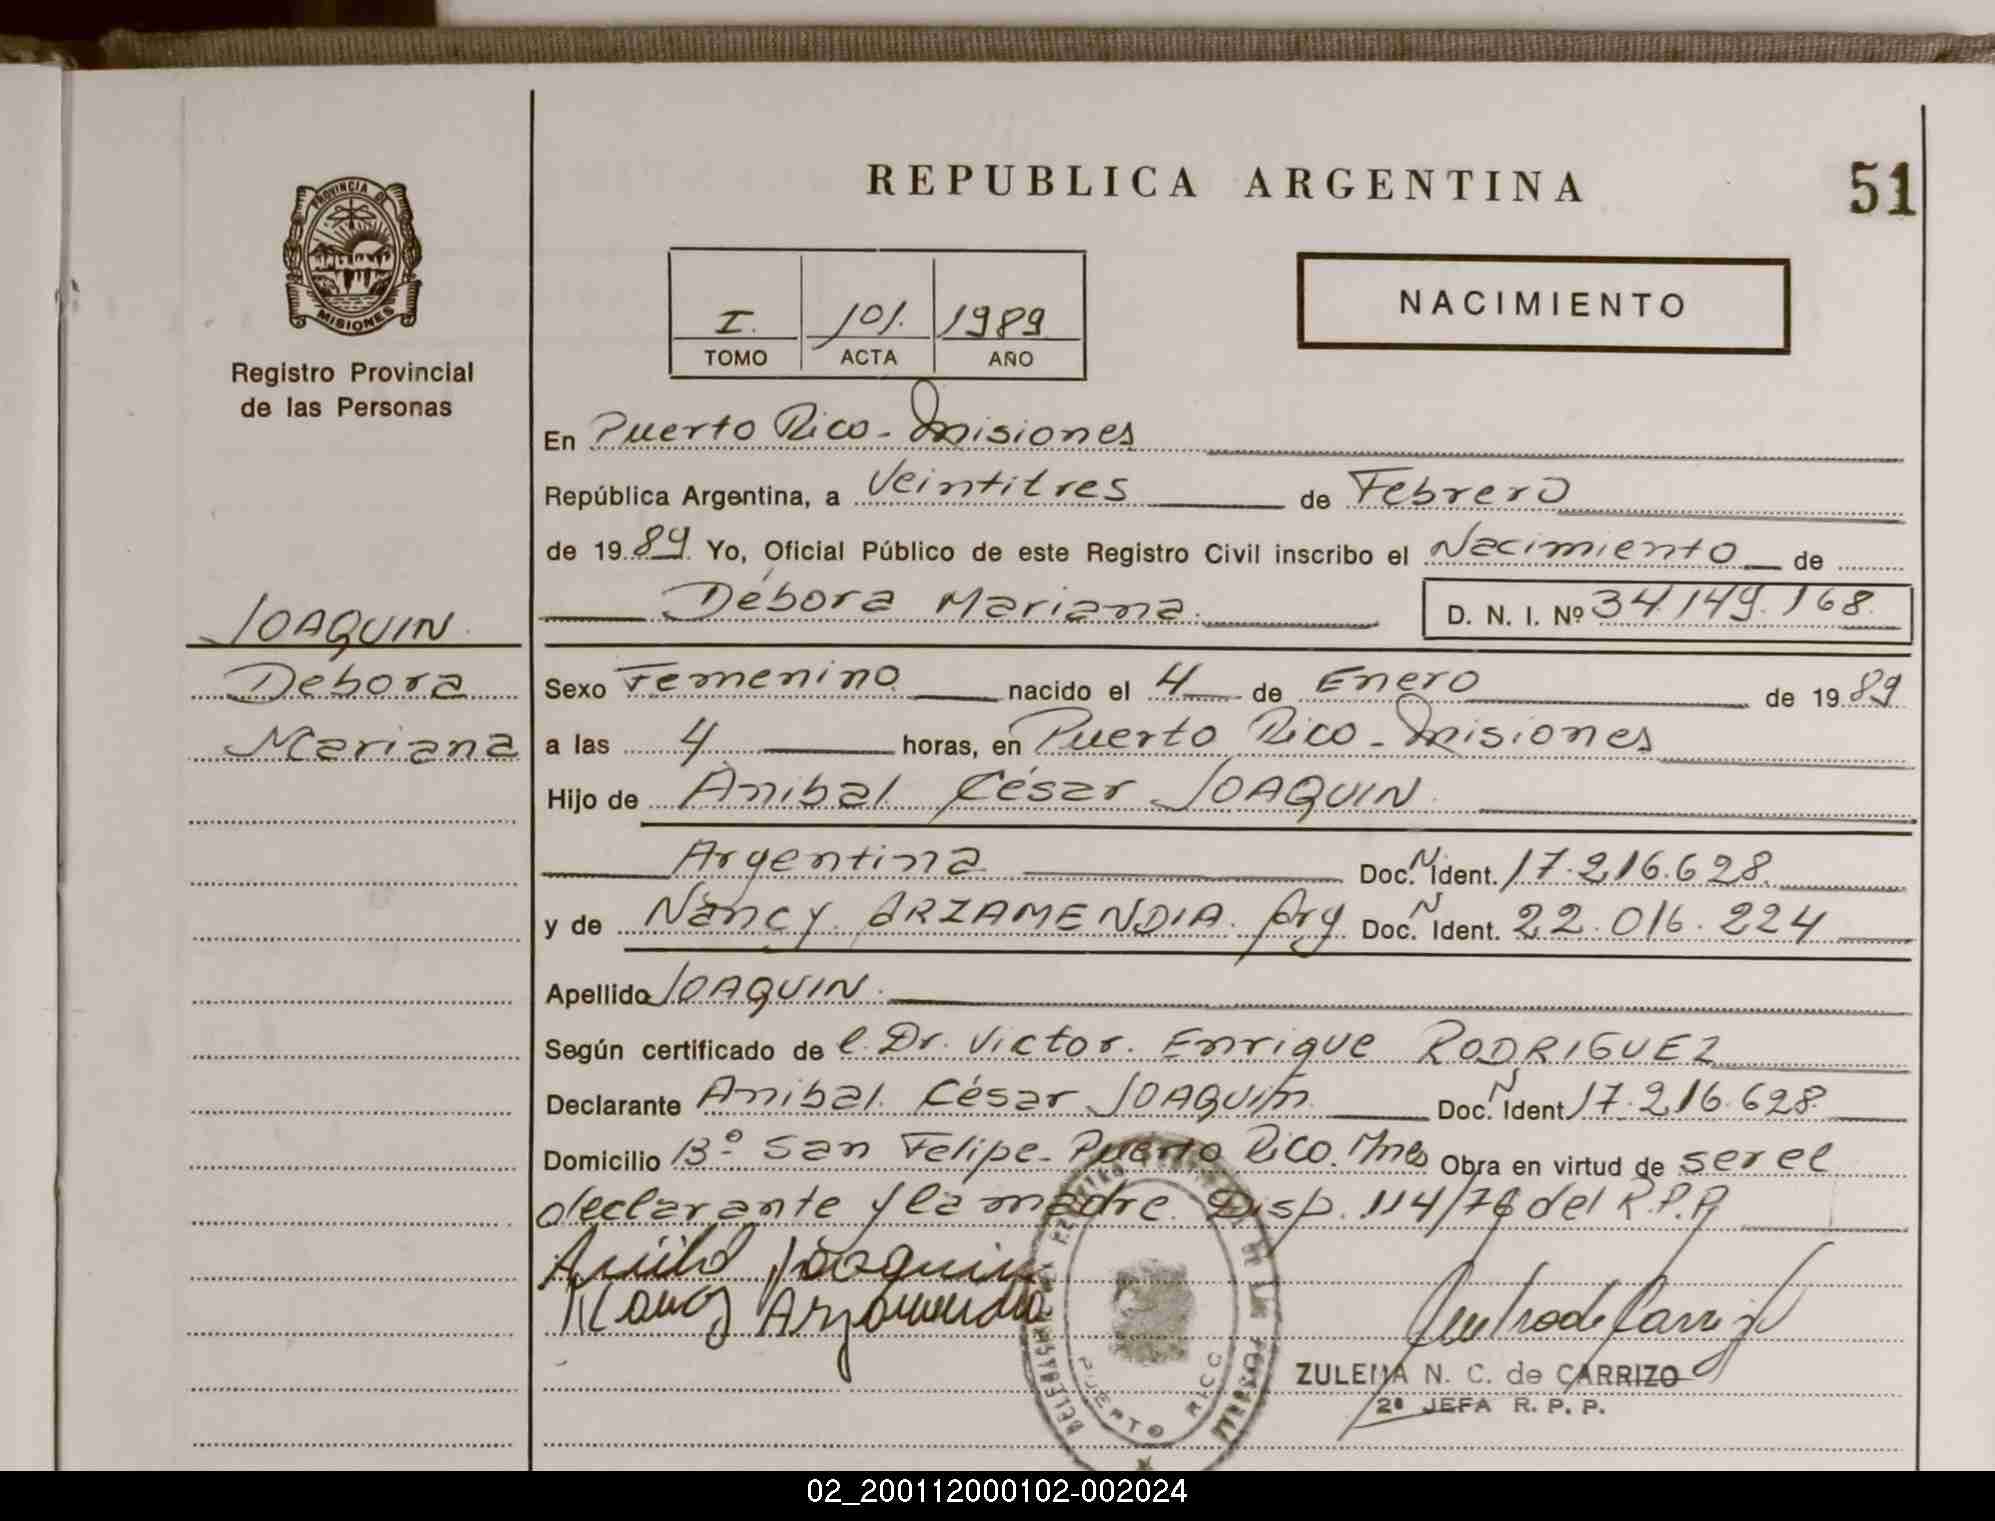 REPUBLICA ARGENTINA
51
PROVINCIA DE
MISIONES
Registro Provincial
de las Personas
I. 101. 1989
TOMO ACTA AÑO
NACIMIENTO
En Puerto Rico - Misiones
República Argentina, a Veintitres de Febrero
de 1989 Yo, Oficial Público de este Registro Civil inscribo el Nacimiento de
Débora Mariana. D. N. I. Nº 34.149.168
JOAQUIN
Debora
Mariana
Sexo Femenino nacido el 4 de Enero de 1989
a las 4 horas, en Puerto Rico - Misiones
Hijo de Anibal César JOAQUIN
Argentina Doc. N Ident. 17.216.628
y de Nancy ARZAMENDIA. Arg Doc. N Ident. 22.016.224
Apellido JOAQUIN
Según certificado de l. Dr. Victor. Enrique RODRIGUEZ
Declarante Anibal César JOAQUIN Doc. N Ident 17.216.628
Domicilio Bº San Felipe - Puerto Rico. Mnes Obra en virtud de ser el
declarante y la madre. Disp. 114/76 del R.P.P
Joaquin
Nancy Arzamendia
PUERTO RICO
ZULEMA N. C. de CARRIZO
2ª JEFA R. P. P.
02_200112000102-002024